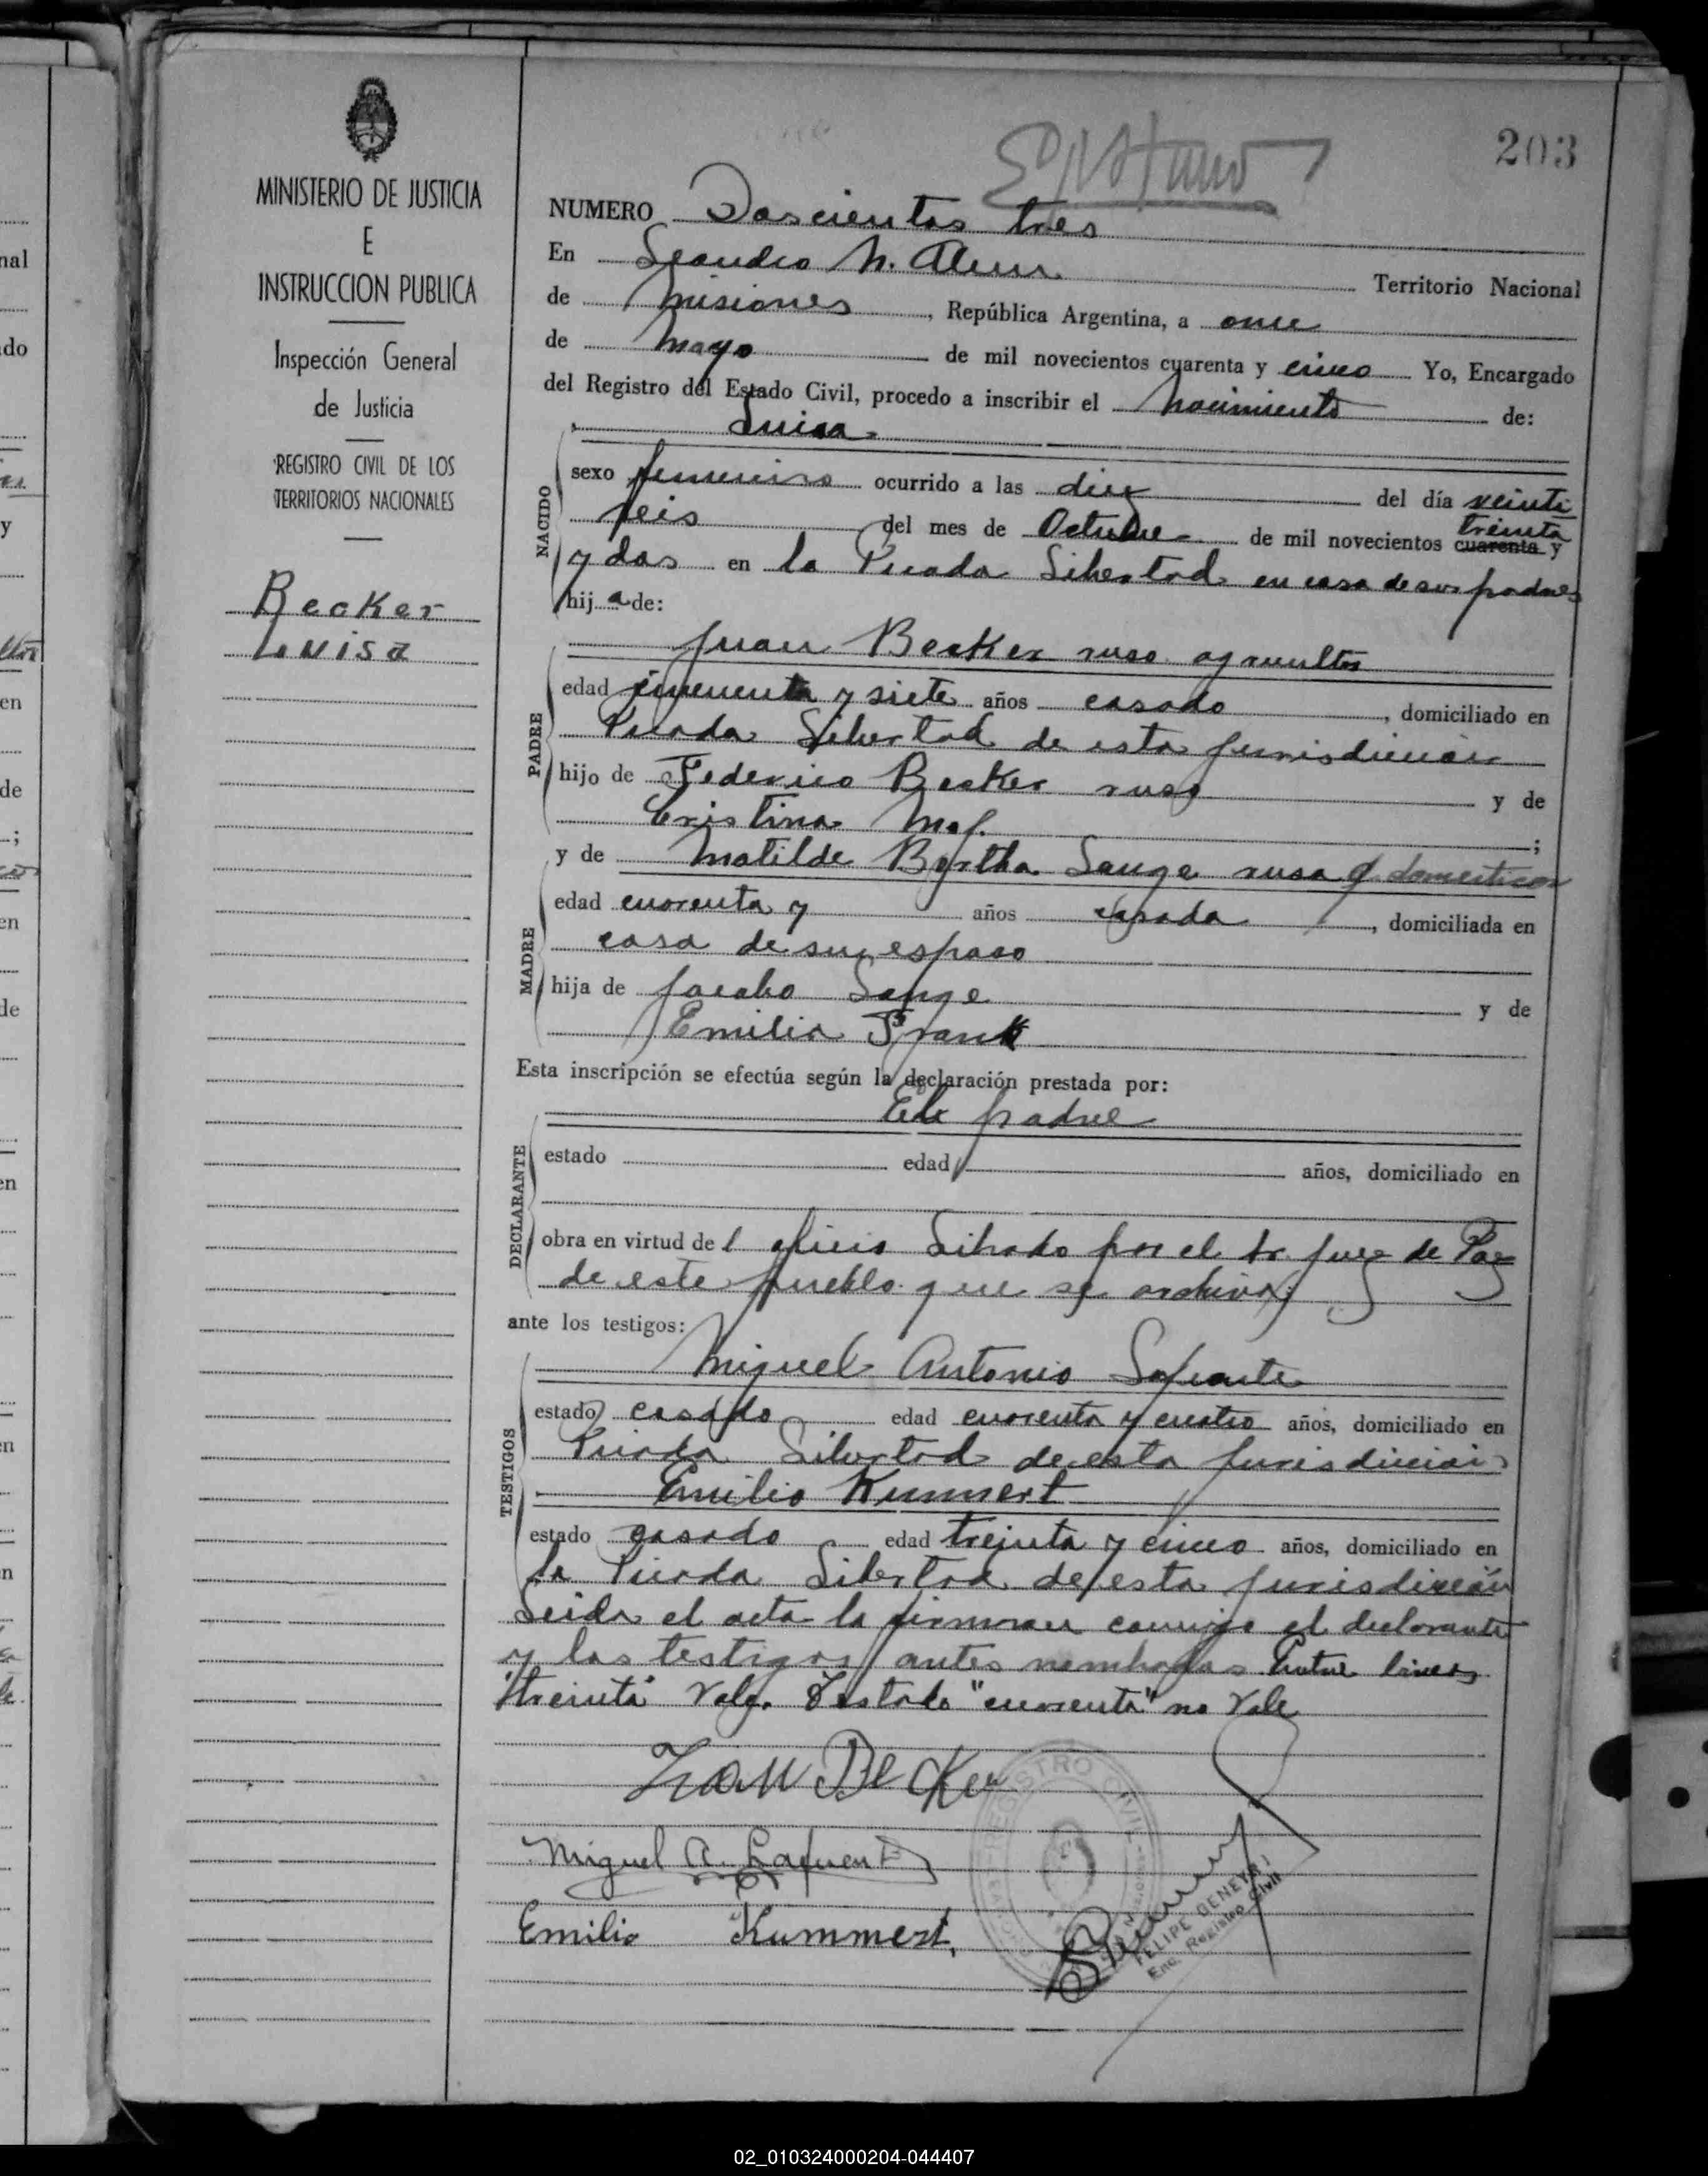 203
MINISTERIO DE JUSTICIA
E
INSTRUCCION PUBLICA
Inspección General
de Justicia
REGISTRO CIVIL DE LOS
TERRITORIOS NACIONALES
Becker
Luisa
NUMERO Doscientos tres
En Leandro N. Alem Territorio Nacional
de Misiones, República Argentina, a once
de Mayo de mil novecientos cuarenta y cinco Yo, Encargado
del Registro del Estado Civil, procedo a inscribir el Nacimiento de:
Luisa
NACIDO
sexo femenino ocurrido a las diez del día veinti
seis del mes de Octubre de mil novecientos cuarenta y
treinta
y dos en la Picada Libertad en casa de sus padres
hija de:
PADRE
Juan Becker ruso agricultor
edad cincuenta y siete años casado, domiciliado en
Picada Libertad de esta jurisdicción
hijo de Federico Becker ruso y de
Cristina ;
MADRE
y de Matilde Bertha Lange rusa q. domesticos
edad cuarenta y años casada, domiciliada en
casa de su esposo
hija de Jacobo Lange y de
Emilia Frank
Esta inscripción se efectúa según la declaración prestada por:
DECLARANTE
El padre
estado edad años, domiciliado en
obra en virtud del oficio Librado por el Sr. Juez de Paz
de este pueblo que se archiva
ante los testigos:
TESTIGOS
Miguel Antonio Lafuente
estado casado edad cuarenta y cuatro años, domiciliado en
Picada Libertad de esta jurisdicción
Emilio Kummert
estado casado edad treinta y cinco años, domiciliado en
la Picada Libertad de esta jurisdicción
Leida el acta la firman conmigo el declarante
y los testigos antes nombrados. Entre lineas
"treinta" Vale. Testado "cuarenta" no Vale
Juan Becker
Miguel A. Lafuente
Emilio Kummert
REGISTRO CIVIL
FELIPE GENEYRI
Enc. Registro Civil
02_010324000204-044407